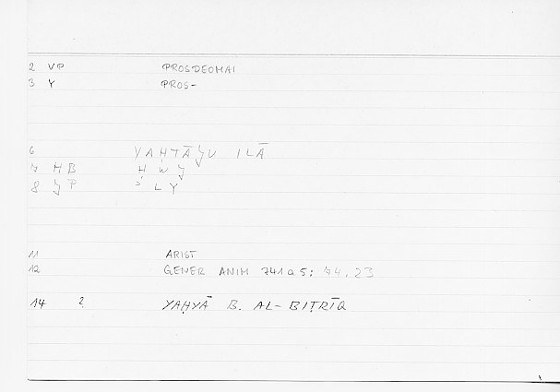 2 VP PROSDEOMAI
3 Y PROS-
6 YAḤTĀǦU ILĀ
7 HB Ḥ W Ǧ
8 ǦP ʾ L Y
11 ARIST
12 GENER ANIM 741a5; 74.23
14 ? YAḤYĀ B. AL-BIṬRĪQ